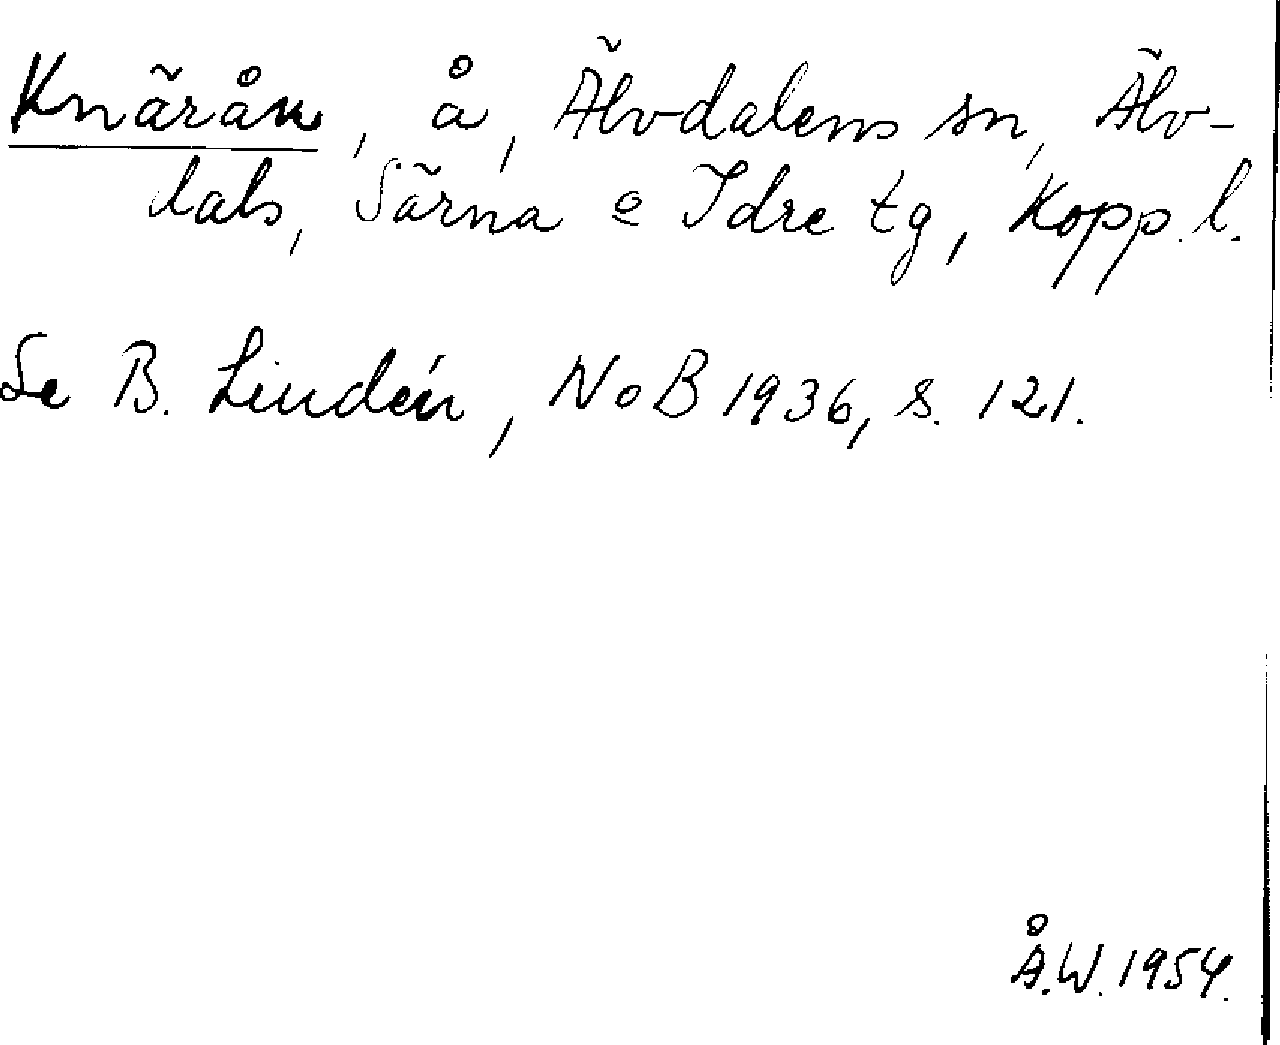 Knärån, å, Älvdalens sn, Älv-
dals, Särna o Idre tg, Kopp. l.
Se B. Lindén, NoB 1936, s. 121.
Å.W. 1954.